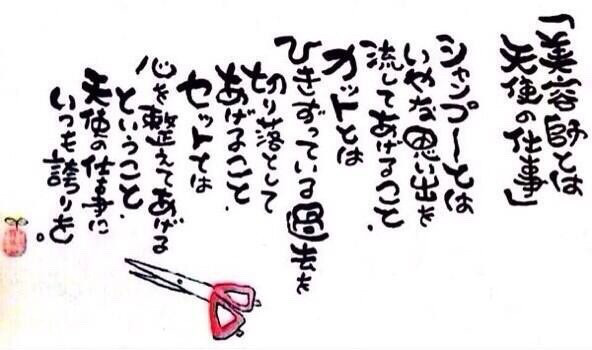 「美容師とは
天使の仕事」
シャンプーとは
いやな思い出を
流してあげること.
カットとは
ひきずっている過去を
切り落として
あげること.
セットとは
心を整えてあげる
ということ.
天使の仕事に
いつも誇りを。